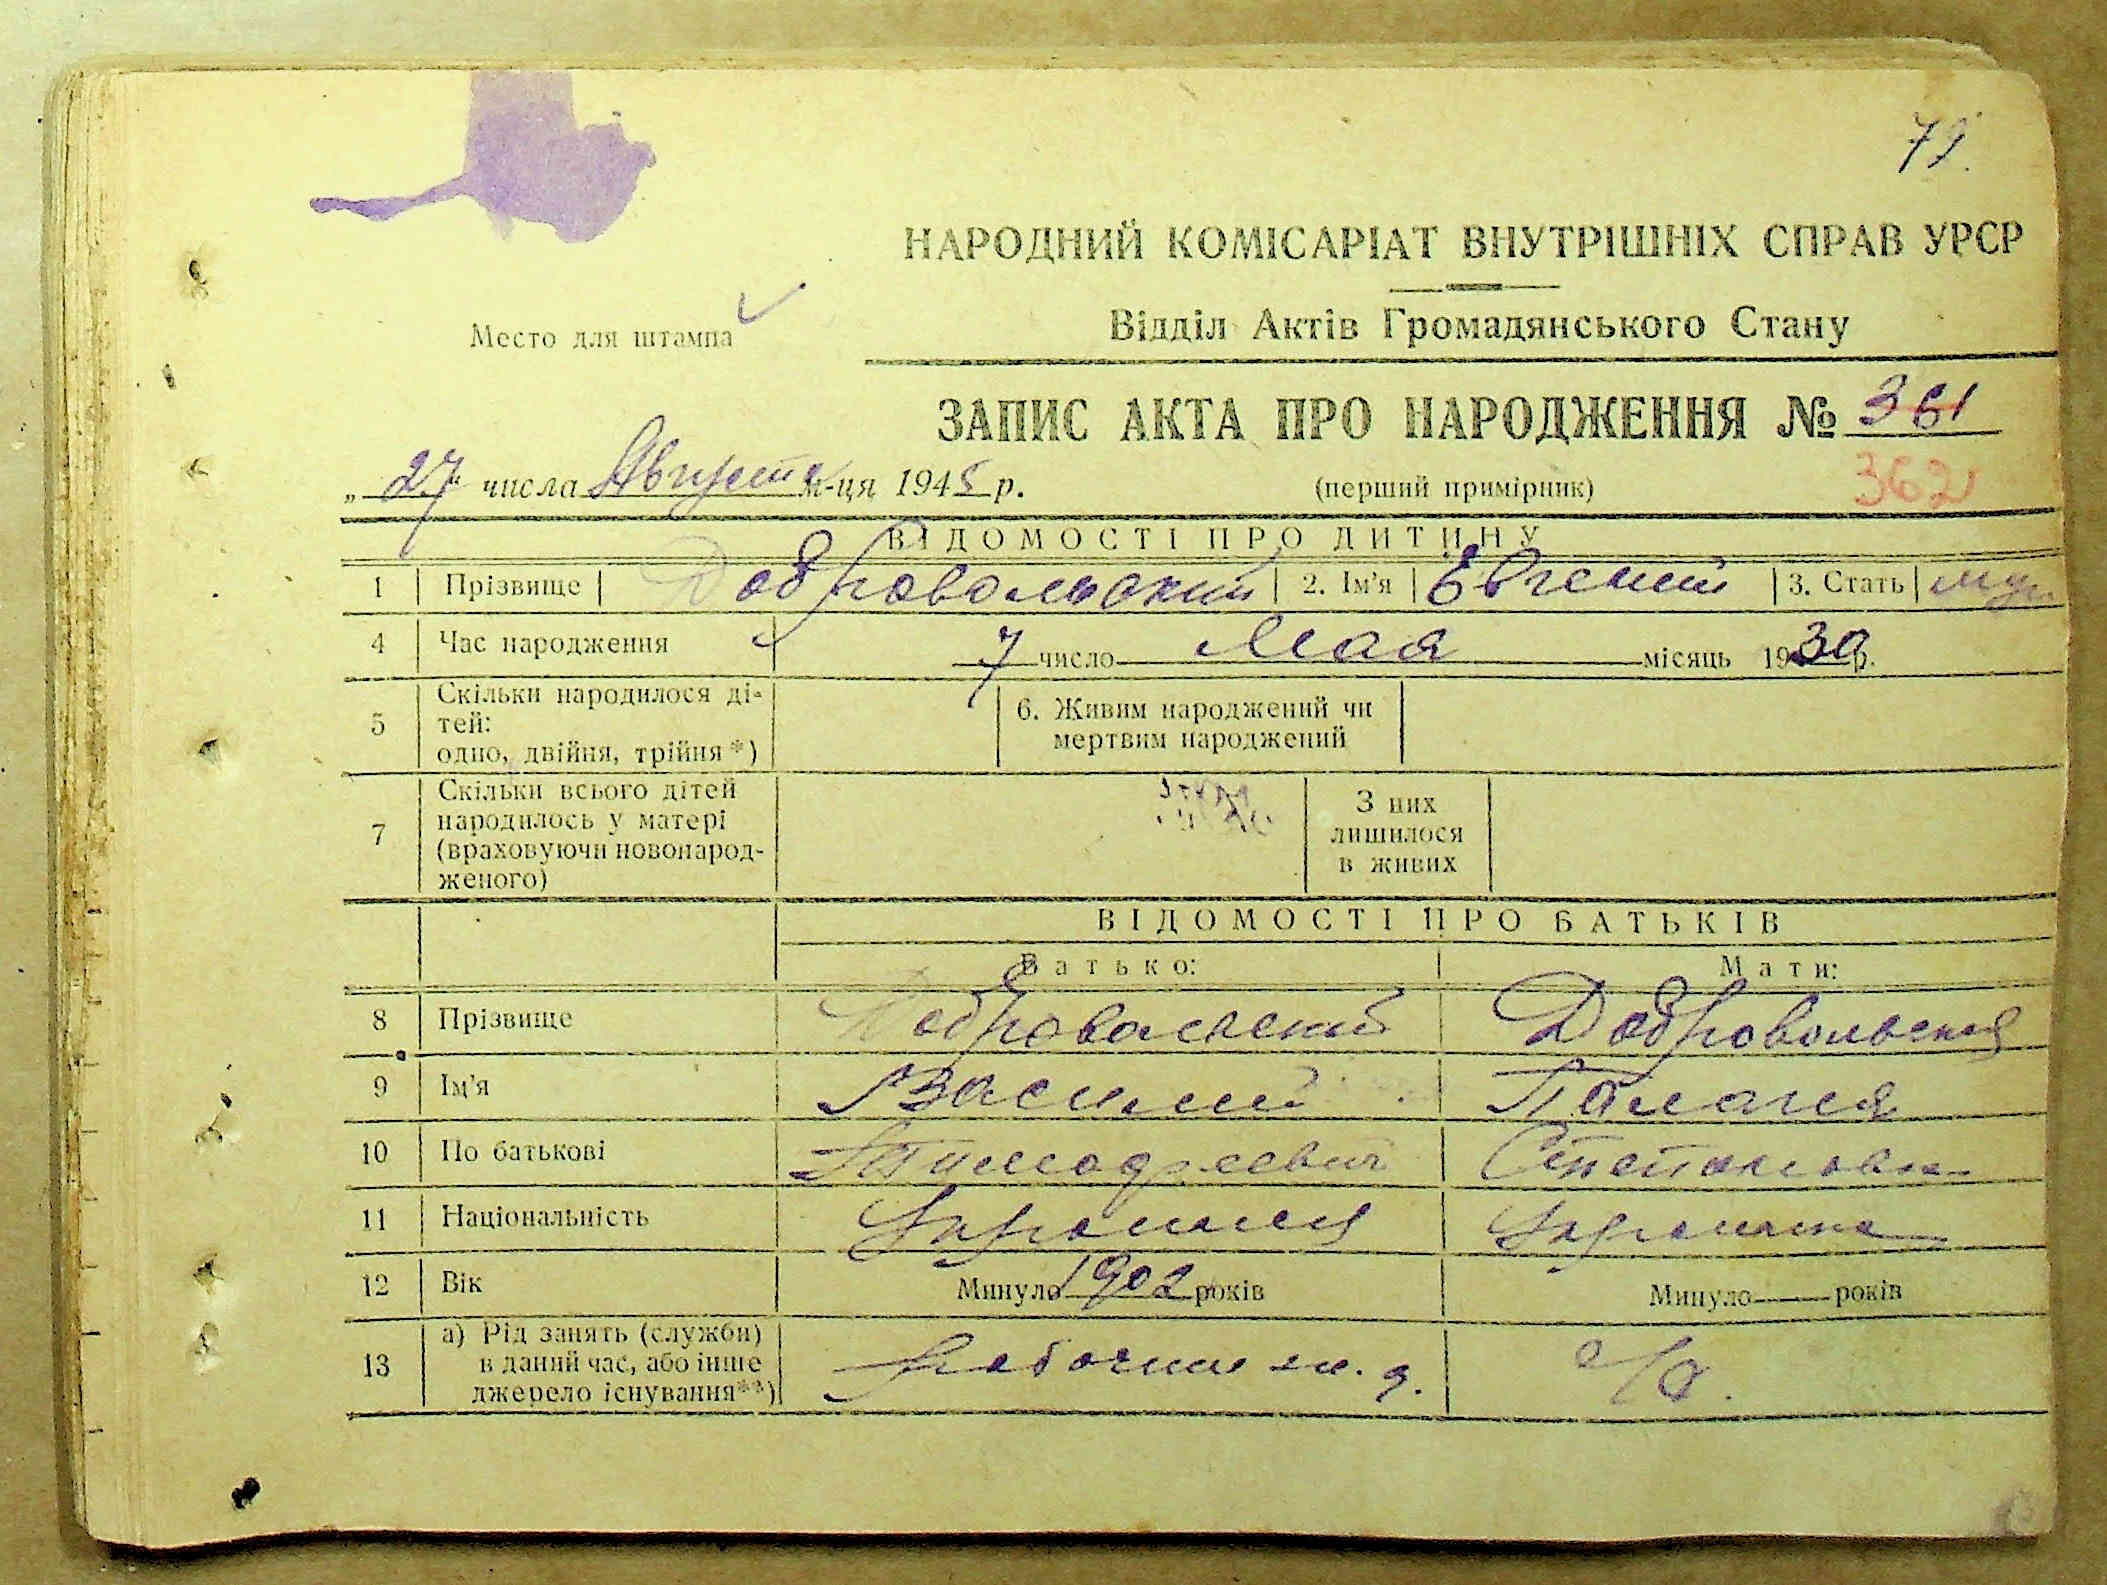 79.
НАРОДНИЙ КОМІСАРІАТ ВНУТРІШНІХ СПРАВ УРСР
Место для штампа
Відділ Актів Громадянського Стану
ЗАПИС АКТА ПРО НАРОДЖЕННЯ № 361
„27“ числа Августа м-ця 1945 р. (перший примірник) 362
ВІДОМОСТІ ПРО ДИТИНУ
1 Прізвище Добровольский 2. Ім'я Евгений 3. Стать муж
4 Час народження 7 число Мая місяць 1930 р.
5 Скільки народилося ді-
тей:
одно, двійня, трійня *)
6. Живим народжений чи
мертвим народжений
7 Скільки всього дітей
народилось у матері
(враховуючи новонарод-
женого)
З них
лишилося
в живих
ВІДОМОСТІ ПРО БАТЬКІВ
Батько: Мати:
8 Прізвище Добровольский Добровольская
9 Ім'я Василий Палагея
10 По батькові Тимофеевич Степановна
11 Національність Украинец Украинка
12 Вік Минуло 1902 років Минуло — років
13 а) Рід занять (служби)
в даний час, або інше
джерело існування**)
рабочий ж. д.